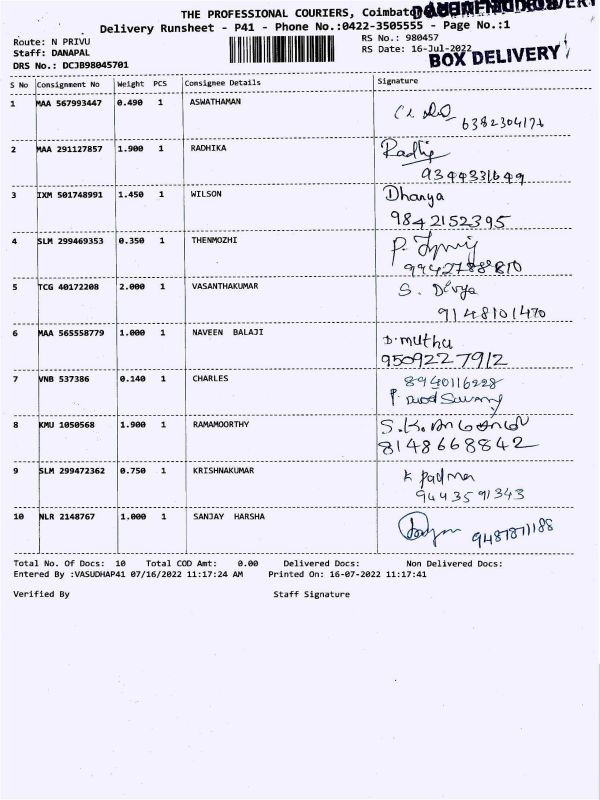 THE PROFESSIONAL COURIERS, Coimbato
Delivery Runsheet - P41 - Phone No.:0422-3505555 - Page No.:1
Route: N PRIVU
RS No.: 980457
Staff: DANAPAL
RS Date: 16-Jul-2022
BOX DELIVERY
DRS No.: DCJB98045701
S No Consignment No Weight PCS Consignee Details Signature
1 MAA 567993447 0.490 1 ASWATHAMAN
638230417
2 MAA 291127857 1.900 1 RADHIKA
9344331649
3 IXM 501748991 1.450 1 WILSON Dhanya
9842152395
4 SLM 299469353 0.350 1 THENMOZHI P.
9942788810
5 TCG 40172208 2.000 1 VASANTHAKUMAR S. Divya
9148101470
6 MAA 565558779 1.000 1 NAVEEN BALAJI D.muthu
9509227912
7 VNB 537386 0.140 1 CHARLES 8940116228
8 KMU 1050568 1.900 1 RAMAMOORTHY S.K.
8148668842
9 SLM 299472362 0.750 1 KRISHNAKUMAR K Padma
9443591343
10 NLR 2148767 1.000 1 SANJAY HARSHA
Total No. Of Docs: 10 Total COD Amt: 0.00 Delivered Docs: Non Delivered Docs:
Entered By :VASUDHAP41 07/16/2022 11:17:24 AM Printed On: 16-07-2022 11:17:41
Verified By Staff Signature